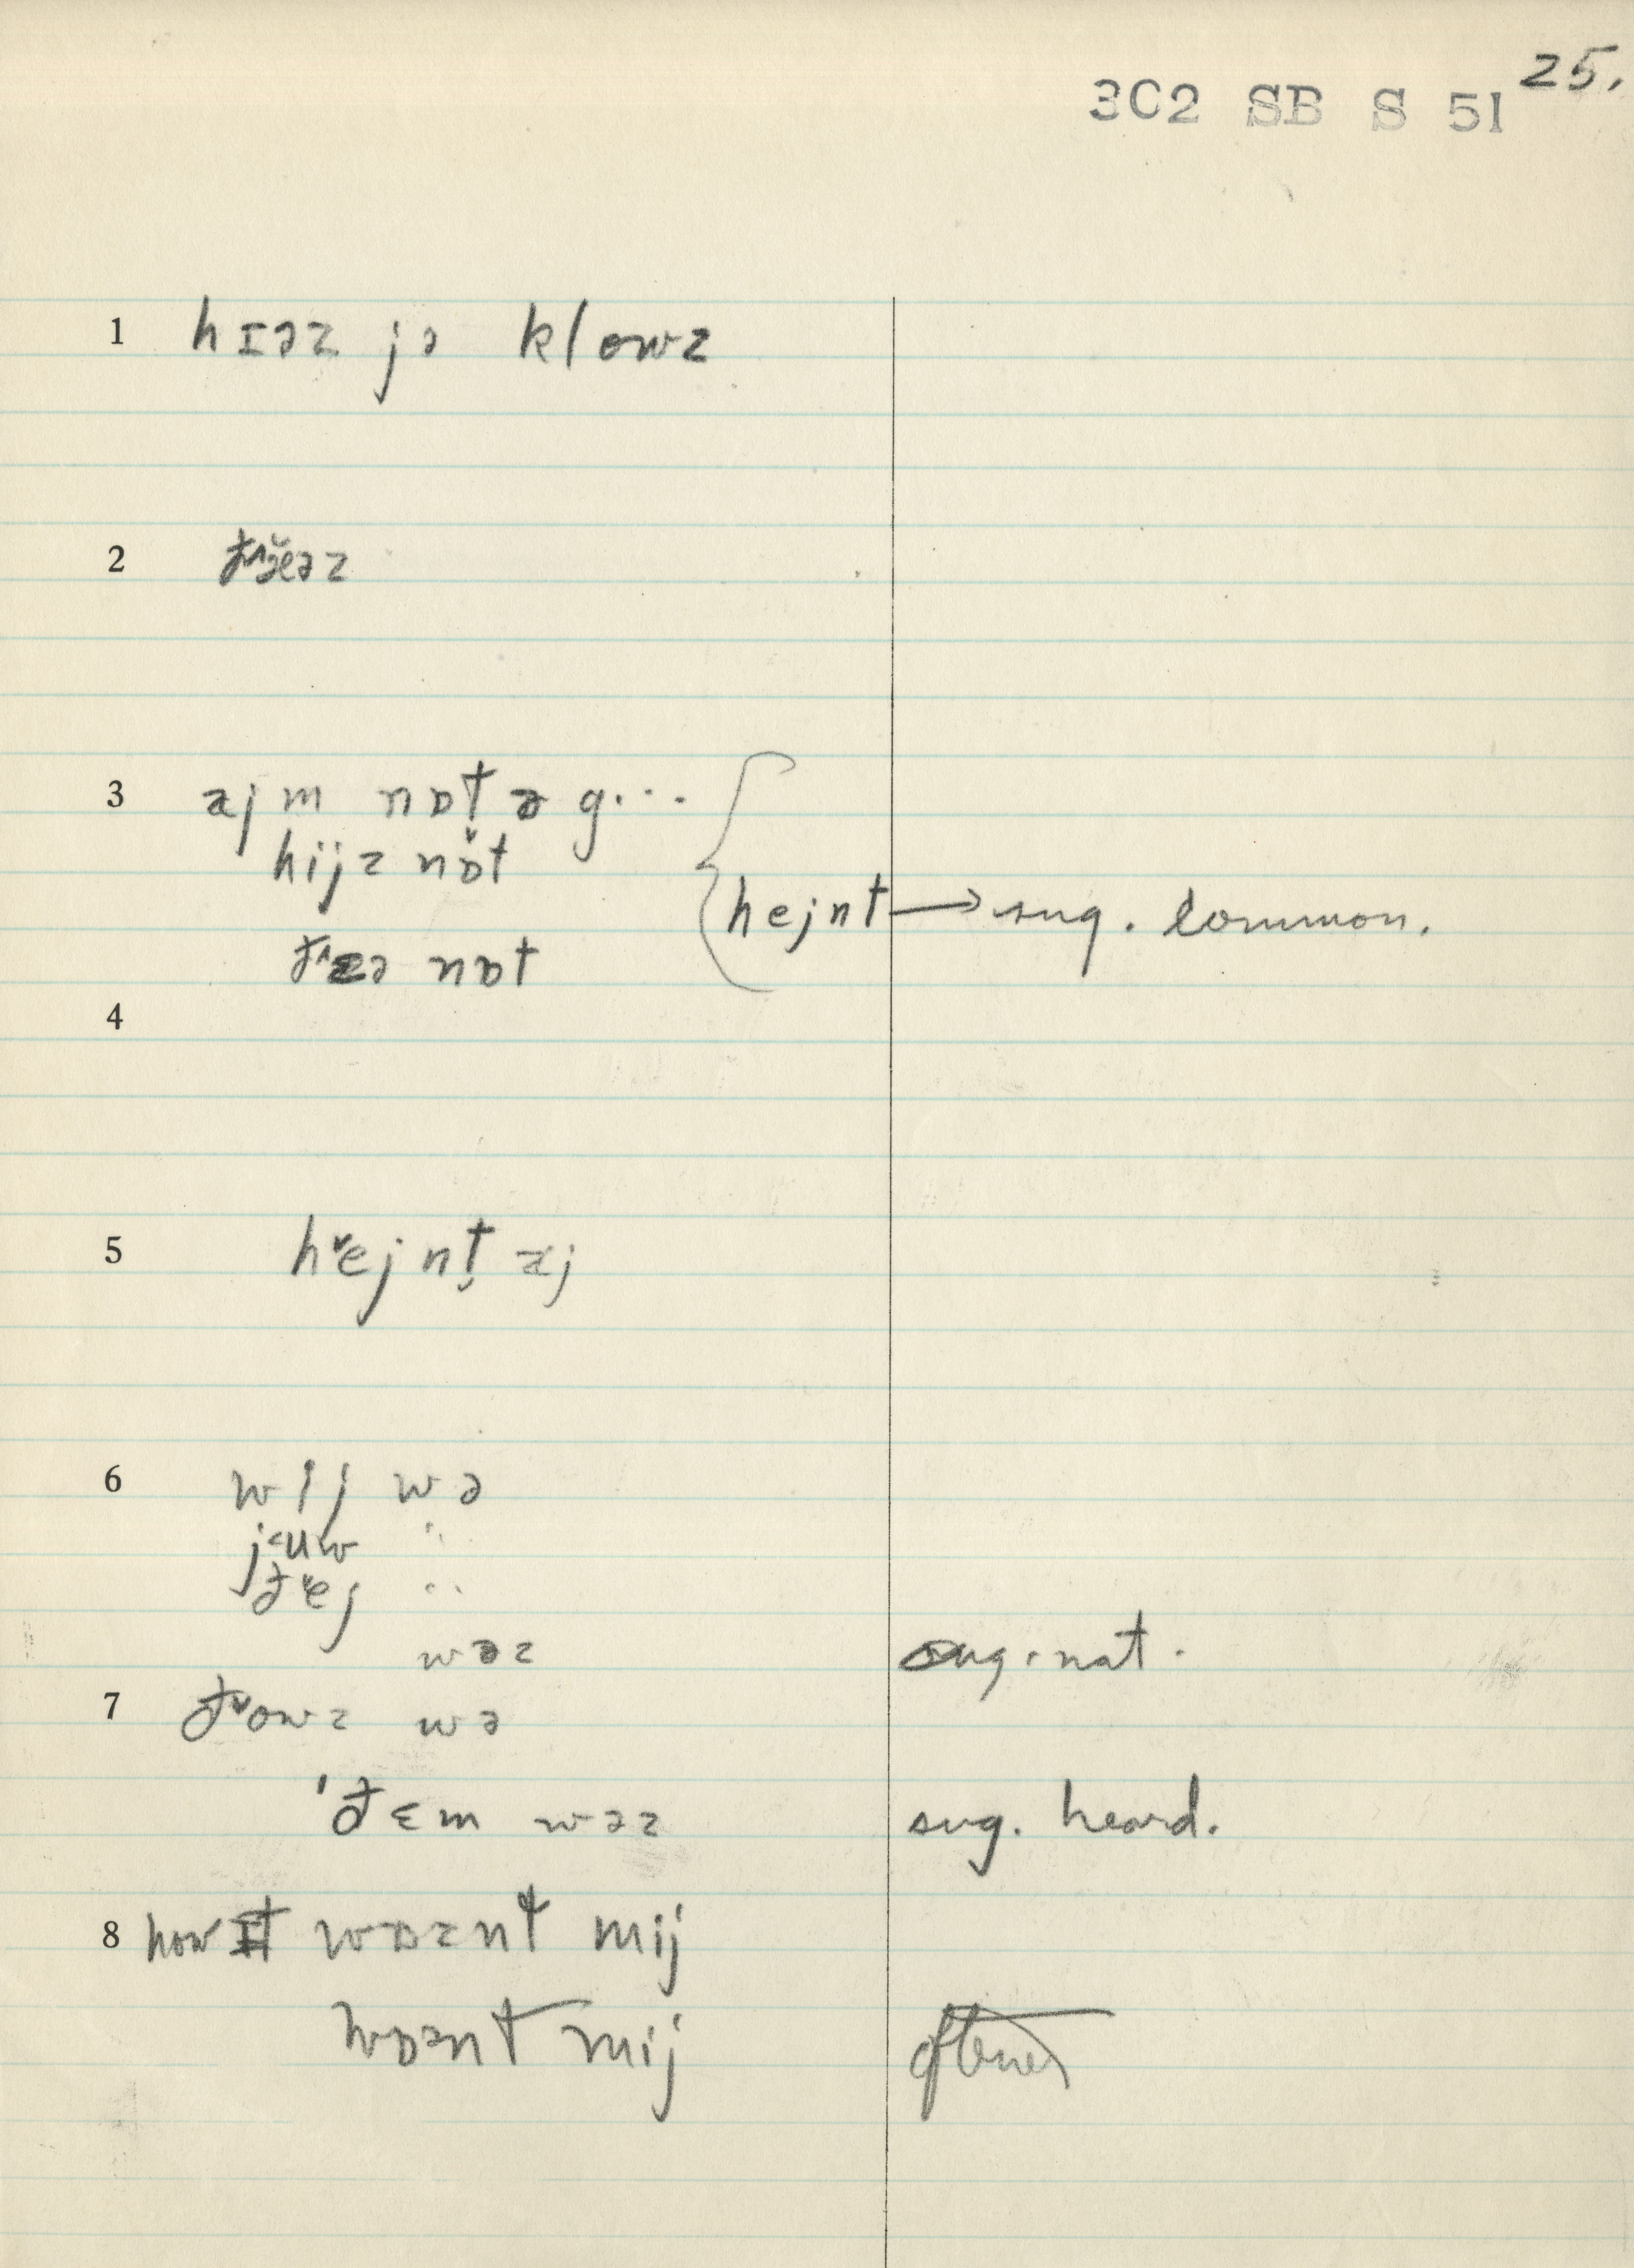 25.
3C2 SB S 51
1 hɪəz jə klowz
2
3 ajm nɒt̬ ə g...
hijz nɒ̌t
hejnt → sug. common.
nɒt
4
5 hˇejnt̬ aj
6 wij wə
j˂uw "
ðˇej "
wəz sug. nat.
7 ðˇowz wə
'ðɛm wəz sug. heard.
8 how ɪt wɒznt mij
wɒznt mij oftener